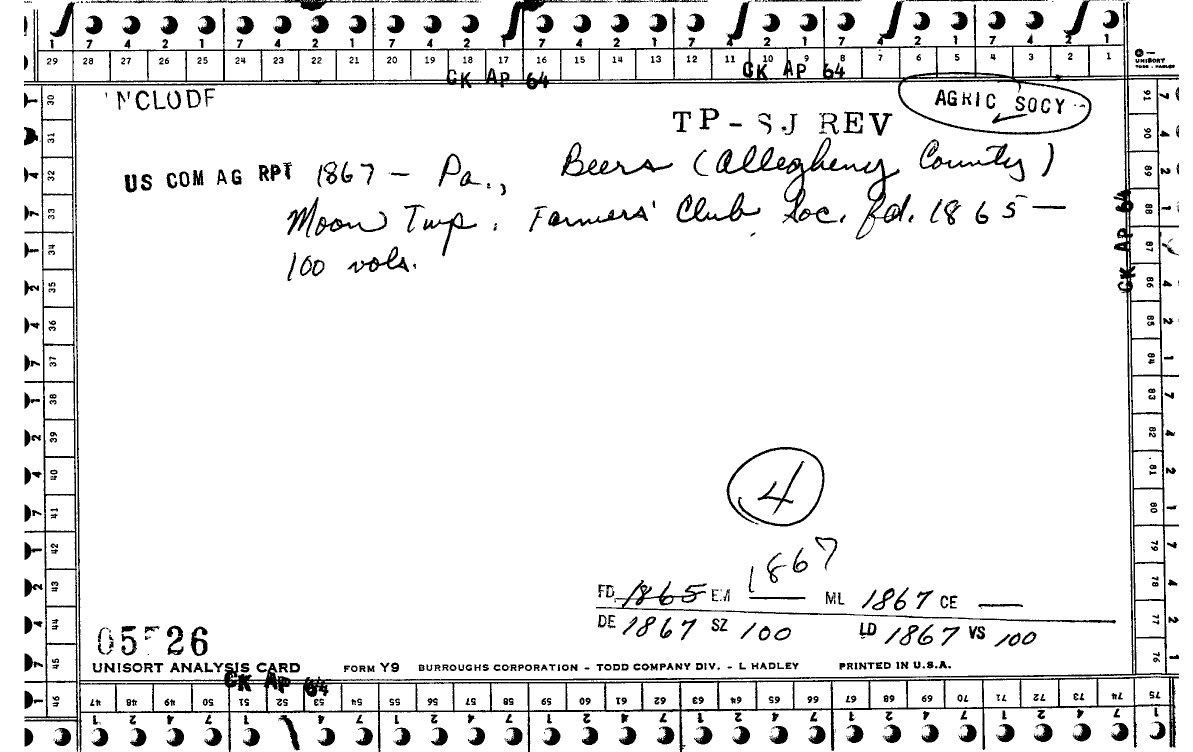 1 7 4 2 1 7 4 2 1 7 4 2 1 7 4 2 1 7 4 2 1 7 4 2 1 7 4 2 1
29 28 27 26 25 24 23 22 21 20 19 18 17 16 15 14 13 12 11 10 9 8 7 6 5 4 3 2 1
UNISORT
CK AP 64 CK AP 64
AGRIC SOCY
TP - SJ REV
US COM AG RPT 1867 - Pa., Beers (Allegheny County)
Moon Twp. Farmers' Club Soc. fd. 1865 —
100 vols.
CK AP 64
4
1867
FD 1865 EM ML 1867 CE —
DE 1867 SZ 100 LD 1867 VS 100
UNISORT ANALYSIS CARD FORM Y9 BURROUGHS CORPORATION - TODD COMPANY DIV. - L HADLEY PRINTED IN U.S.A.
CK AP 64
30
31
32
33
34
35
36
37
38
39
40
41
42
43
44
45
46
91
90
89
88
87
86
85
84
83
82
81
80
79
78
77
76
47 48 49 50 51 52 53 54 55 56 57 58 59 60 61 62 63 64 65 66 67 68 69 70 71 72 73 74 75